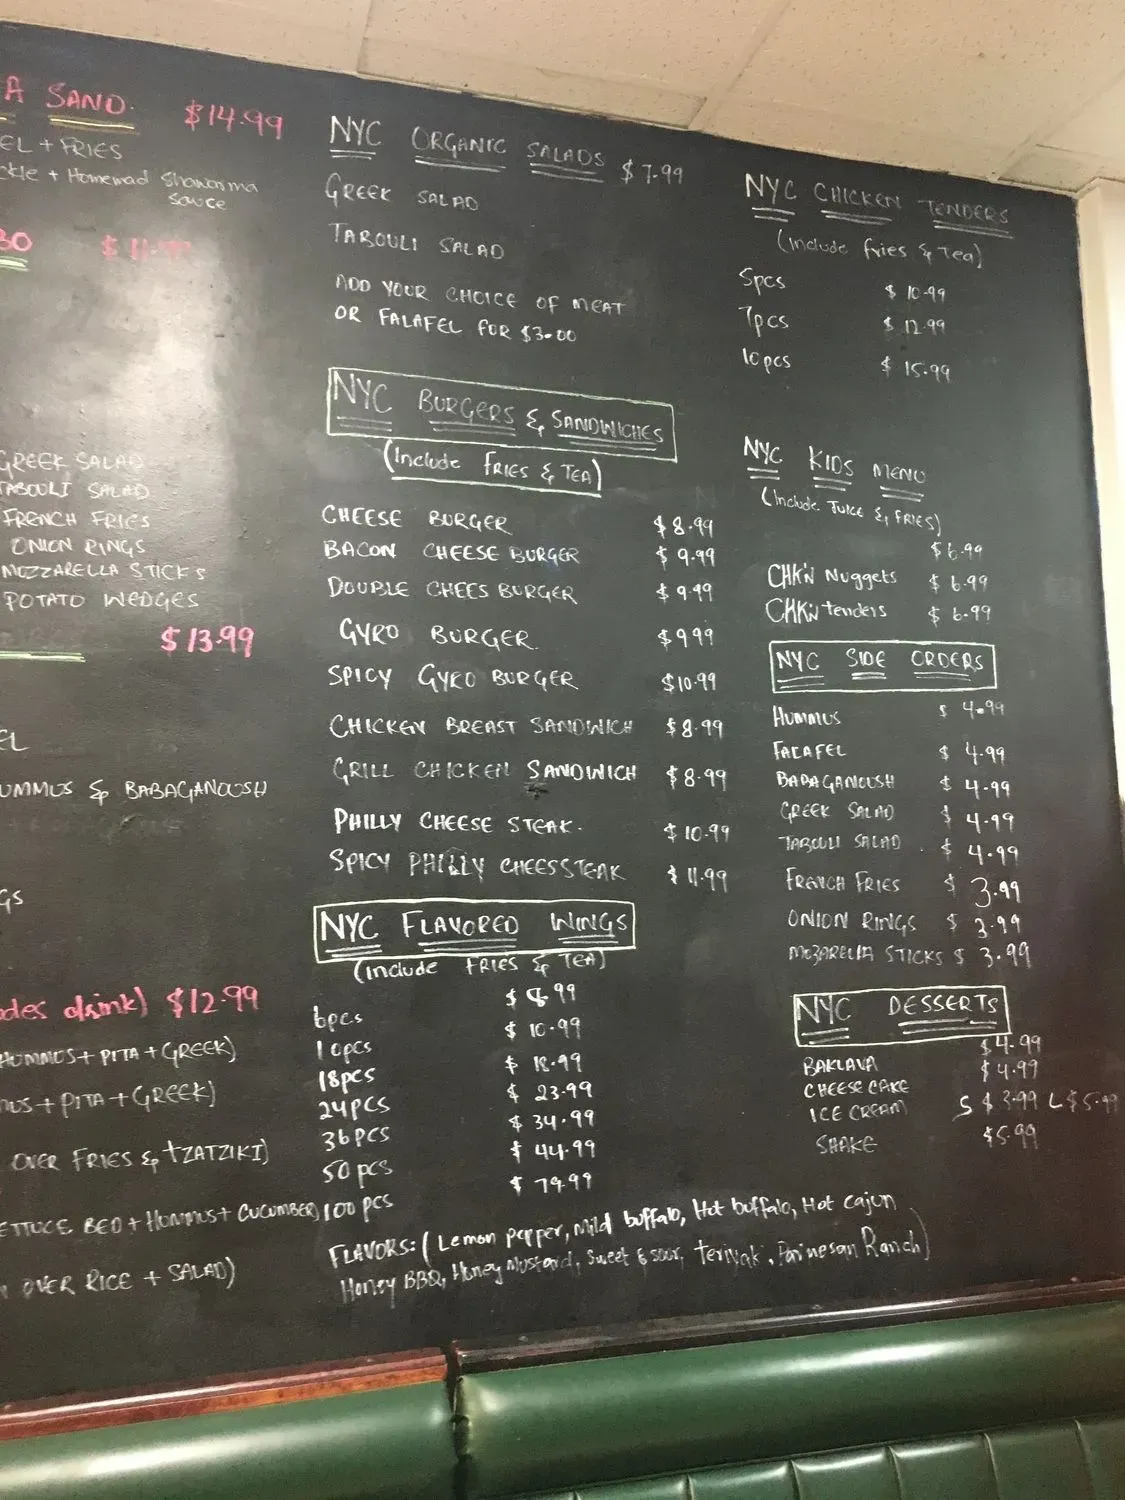 A SAND. $14.99
EL + FRIES
ckle + Homemad Shawarma
sauce
BO
GREEK SALAD
TABOULI SALAD
FRENCH FRIES
ONION RINGS
MOZZARELLA STICKS
POTATO WEDGES
$13.99
EL
UMMUS & BABAGANOUSH
GS
des drink) $12.99
HUMMUS + PITA + GREEK)
US + PITA + GREEK)
OVER FRIES & TZATZIKI)
ETTUCE BED + HUMMUS + CUCUMBER)
OVER RICE + SALAD)
NYC ORGANIC SALADS $7.99
GREEK SALAD
TABOULI SALAD
ADD YOUR CHOICE OF MEAT
OR FALAFEL FOR $3.00
NYC BURGERS & SANDWICHES
(Include FRIES & TEA)
CHEESE BURGER $8.99
BACON CHEESE BURGER $9.99
DOUBLE CHEES BURGER $9.99
GYRO BURGER $9.99
SPICY GYRO BURGER $10.99
CHICKEN BREAST SANDWICH $8.99
GRILL CHICKEN SANDWICH $8.99
PHILLY CHEESE STEAK. $10.99
SPICY PHILLY CHEESSTEAK $11.99
NYC FLAVORED WINGS
(Include FRIES & TEA)
6pcs $8.99
10pcs $10.99
18pcs $18.99
24pcs $23.99
36pcs $34.99
50pcs $44.99
100pcs $79.99
FLAVORS: (Lemon pepper, Mild buffalo, Hot buffalo, Hot cajun
Honey BBQ, Honey Mustard, Sweet & sour, teriyak, Parmesan Ranch)
NYC CHICKEN TENDERS
(Include fries & Tea)
5pcs $10.99
7pcs $12.99
10pcs $15.99
NYC KIDS MENU
(Include JUICE & FRIES)
$6.99
CHK'N Nuggets $6.99
CHK'N tenders $6.99
NYC SIDE ORDERS
HUMMUS $4.99
FALAFEL $4.99
BABAGANOUSH $4.99
GREEK SALAD $4.99
TABOULI SALAD $4.99
FRENCH FRIES $3.99
ONION RINGS $3.99
MOZARELLA STICKS $3.99
NYC DESSERTS
BAKLAVA $4.99
CHEESE CAKE $4.99
ICE CREAM S $3.99 L $5.99
SHAKE $5.99